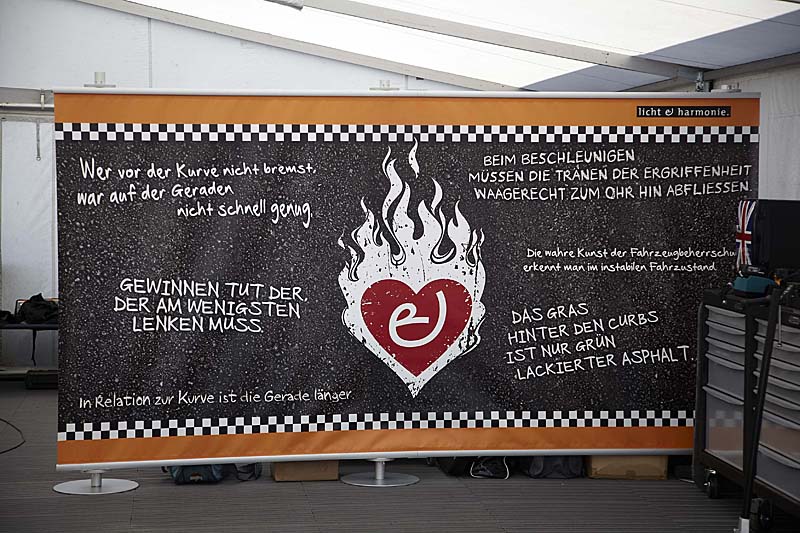 licht & harmonie.
Wer vor der Kurve nicht bremst,
war auf der Geraden
nicht schnell genug.
BEIM BESCHLEUNIGEN
MÜSSEN DIE TRÄNEN DER ERGRIFFENHEIT
WAAGERECHT ZUM OHR HIN ABFLIESSEN.
Die wahre Kunst der Fahrzeugbeherrschu
erkennt man im instabilen Fahrzustand.
GEWINNEN TUT DER,
DER AM WENIGSTEN
LENKEN MUSS.
e
DAS GRAS
HINTER DEN CURBS
IST NUR GRÜN
LACKIERTER ASPHALT.
In Relation zur Kurve ist die Gerade länger.